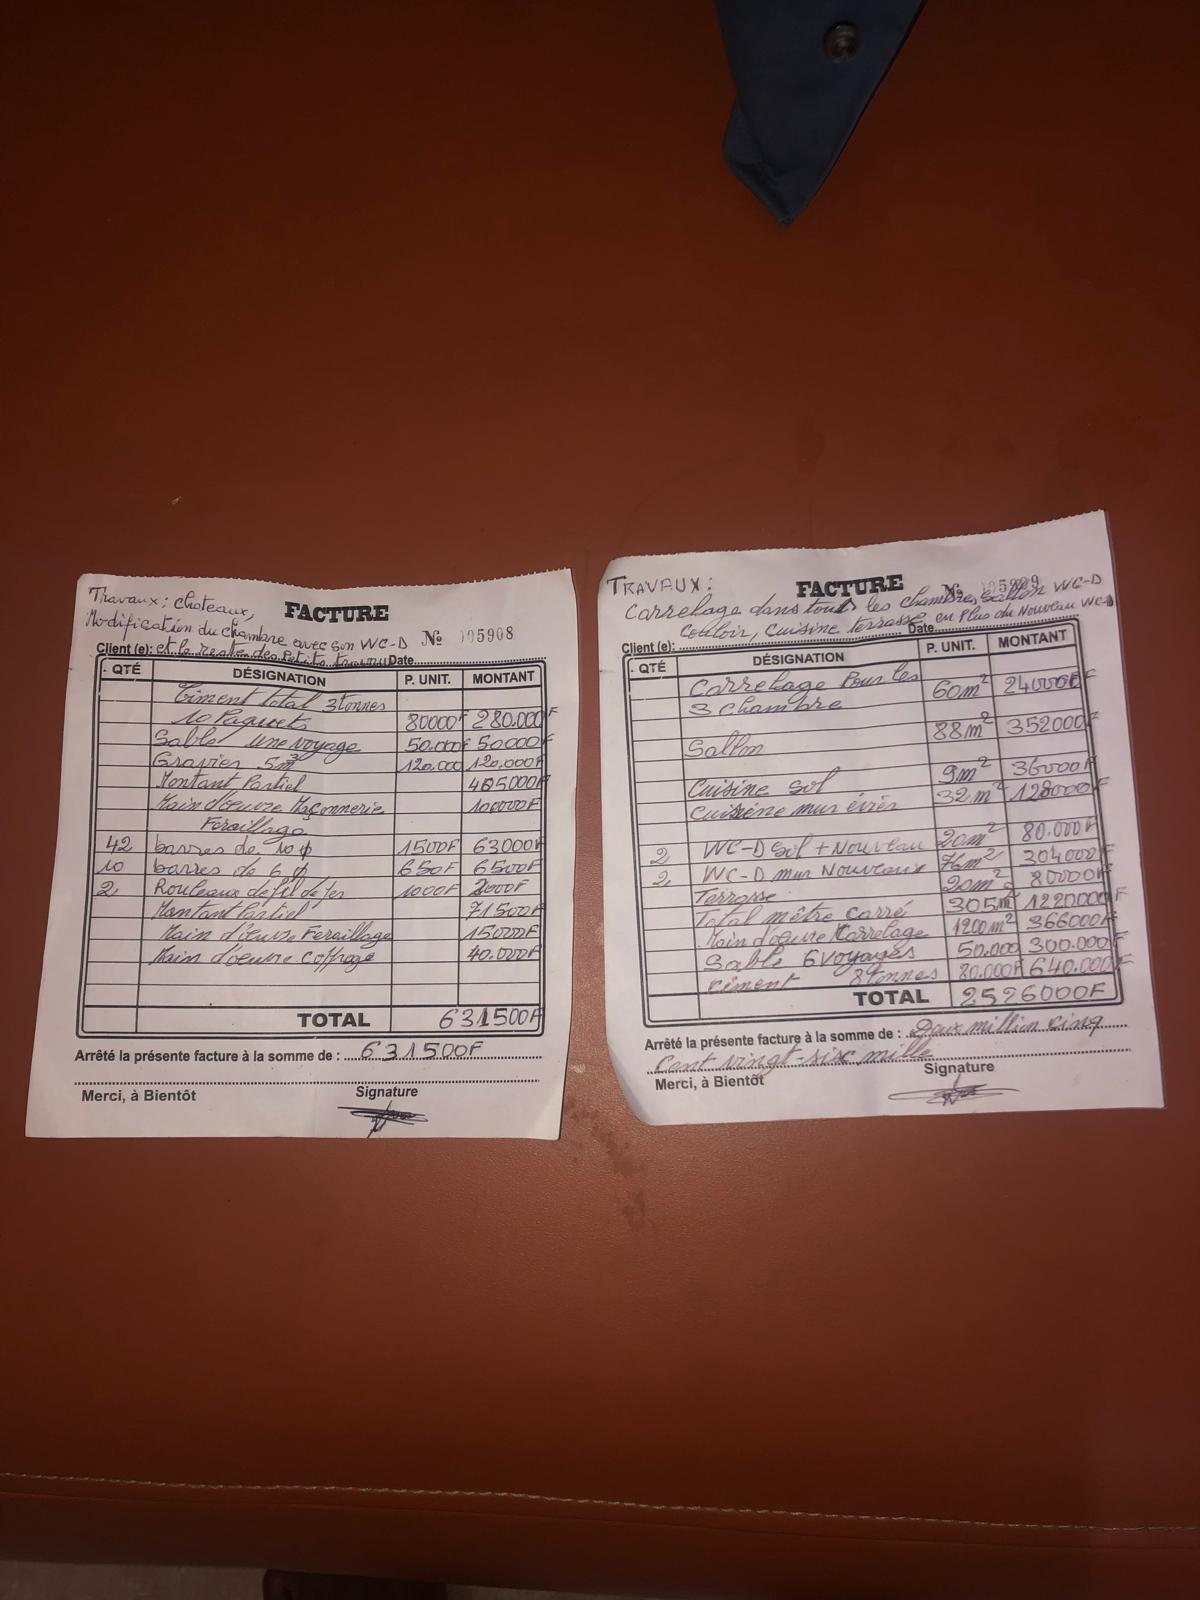 Travaux: chateaux,
FACTURE
Modification du chambre avec son WC-D
N° 005908
Client (e): et le reste des Petits travau Date
QTÉ DÉSIGNATION P. UNIT. MONTANT
Ciment total 3tonnes
10 Paquets 80000F 280.000F
Sable une voyage 50.000F 50000F
Gravier 5m³ 120.000 120,000F
Montant Partiel 465000F
Main d'oeuvre Maçonnerie 100000F
Feraillage
42 barres de 10 φ 1500F 63000F
10 barres de 6 φ 650F 6500F
2 Rouleaux de fil de fer 1000F 2000F
Montant Partiel 71500F
Main d'oeuvre Feraillage 15000F
Main d'oeuvre coffrage 40.000F
TOTAL 631500F
Arrêté la présente facture à la somme de : 631500F
Merci, à Bientôt Signature
TRAVAUX:
FACTURE
N°
Carrelage dans tout les chambre, sallon WC-D
couloir, cuisine terrasse, en Plus du Nouveau WC-D
Client (e): Date
QTÉ DÉSIGNATION P. UNIT. MONTANT
Carrelage Pour les 60m² 240000F
3 chambre
Sallon 88m² 352000F
Cuisine Sol 9m² 36000F
cuisiene mur évier 32m² 128000F
2 WC-D Sol + Nouveau 20m² 80.000F
2 WC-D mur Nouveaux 76m² 304000F
Terrasse 20m² 80000F
Total mêtre carré 305m² 1220000F
Main d'oeuvre Carrelage 1200m² 366000F
Sable 6 voyages 50.000 300.000F
ciment 8tonnes 80.000F 640.000F
TOTAL 2526000F
Arrêté la présente facture à la somme de : Deux million cinq
Cent vingt-sixc mille
Merci, à Bientôt Signature